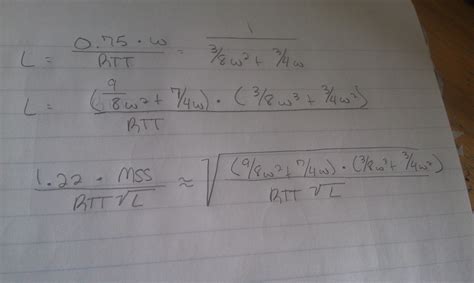 L = 0.75 · w / RTT = 1 / 3/8w² + 3/4w
L = (9/8w² + 7/4w) · (3/8w³ + 3/4w²) / RTT
1.22 · MSS / RTT√L ≈ √(9/8w² + 7/4w) · (3/8w³ + 3/4w²) / RTT√L